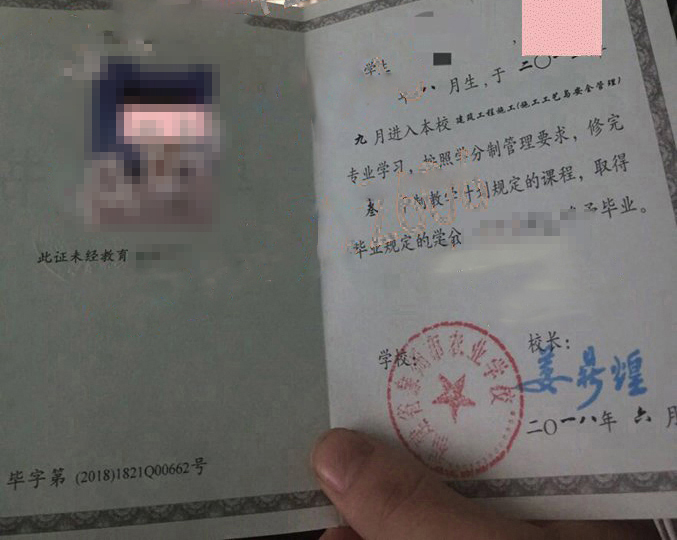 此证未经教育
毕字第 (2018)1821Q00662号
学生
八 月生，于 二〇一
九 月进入本校 建筑工程施工(施工工艺与安全管理)
专业学习，按照学分制管理要求，修完
叁 制教学计划规定的课程，取得
毕业规定的学分 予毕业。
学校：
校长：
市农业学校
二〇一八年 六 月